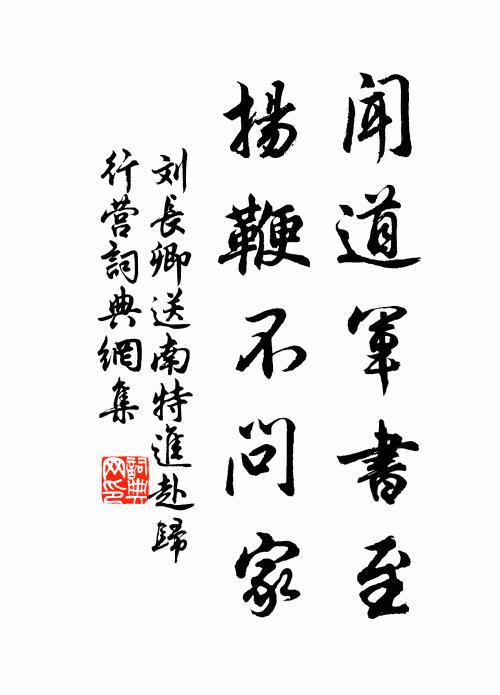 闻道军書至
揚鞭不问家
刘長卿送南特進赴歸
行营詞典網集
詞典
网印